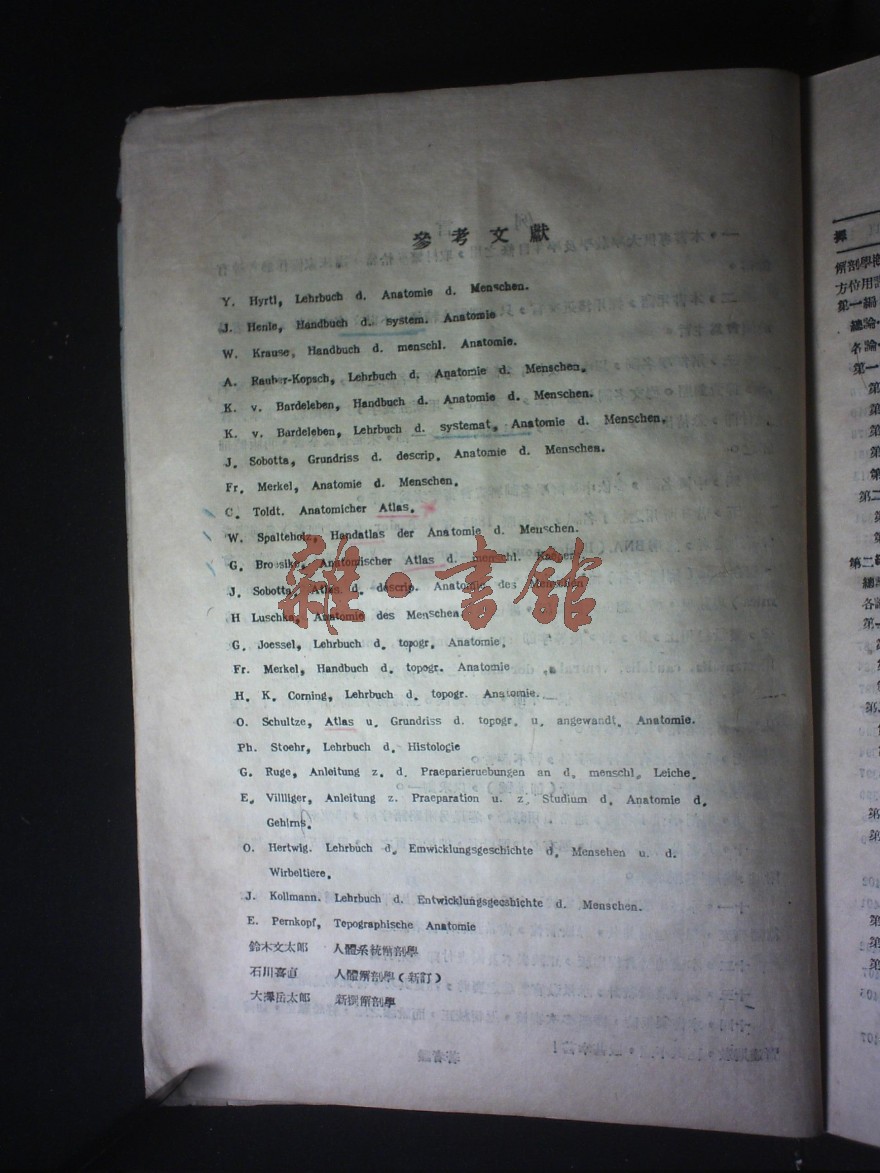 參考文獻
Y. Hyrtl, Lehrbuch d. Anatomie d. Menschen.
J. Henle, Handbuch d. system. Anatomie
W. Krause, Handbuch d. menschl. Anatomie.
A. Rauber-Kopsch, Lehrbuch d. Anatomie d. Menschen.
K. v. Bardeleben, Handbuch d. Anatomie d. Menschen.
K. v. Bardeleben, Lehrbuch d. systemat. Anatomie d. Menschen.
J. Sobotta, Grundriss d. descrip. Anatomie d. Menschen.
Fr. Merkel, Anatomie d. Menschen.
C. Toldt. Anatomicher Atlas.
W. Spalteholz, Handatlas der Anatomie d. Menschen.
G. Broesike, Anatomischer Atlas d. menschl.
J. Sobotta, Atlas d. descrip. Anatomie des Menschen
H Luschka, Anatomie des Menschen
G. Joessel, Lehrbuch d. topogr. Anatomie.
Fr. Merkel, Handbuch d. topogr. Anatomie
H. K. Corning, Lehrbuch d. topogr. Anatomie.
O. Schultze, Atlas u. Grundriss d. topogr. u. angewandt. Anatomie.
Ph. Stoehr, Lehrbuch d. Histologie
G. Ruge, Anleitung z. d. Praeparieruebungen an d. menschl. Leiche.
E. Villiger, Anleitung z. Praeparation u. z. Studium d. Anatomie d.
Gehirns.
O. Hertwig. Lehrbuch d. Emwicklungsgeschichte d. Mensehen u. d.
Wirbeltiere.
J. Kollmann. Lehrbuch d. Entwicklungsgeschichte d. Menschen.
E. Pernkopf, Tepographische Anatomie
鈴木文太郎 人體系統解剖學
石川喜直 人體解剖學（新訂）
大澤岳太郎 新撰解剖學
雜·書館
解剖學
方位用語
第一編
總論
各論
第一
第二
第二編
總
各論
第一